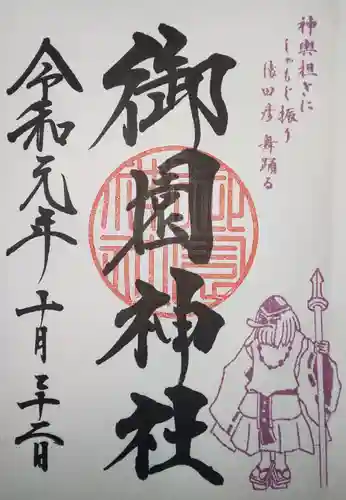 神輿担ぎに
しゃもじ振り
猿田彦 舞踊る
御園神社
令和元年
十月二十二日